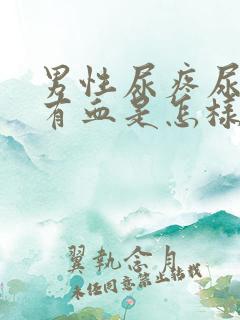 男性尿疼尿
有血是怎样
翼执念月
未经同意禁止转载